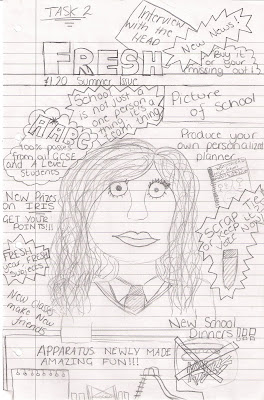 TASK 2
Interview
with the
HEAD
New News!
Buy it
or your
missing out!
FRESH
£1.20 Summer Issue
School is
not just a
one person
thing it's a
Picture
of School
AABC
100% passes
from all GCSE
and A Level
Students
Produce your
own personalized
planner
New Prizes
on IRIS
GET YOUR
POINTS!!!
FRESH
year, FRESH
Subjects
New Class
make New
friends
New School
Dinners !!!
APPARATUS NEWLY MADE
AMAZING FUN!!!